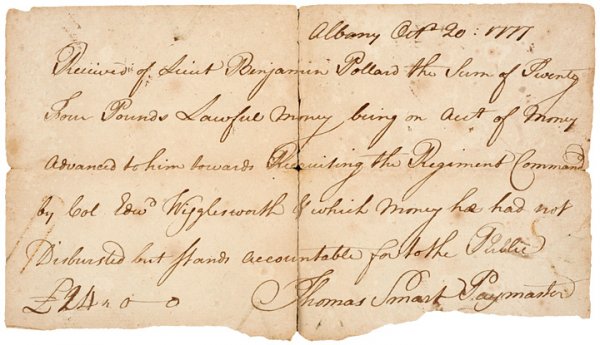 Albany Octr 20: 1777
Received of Lieut Benjamin Pollard the Sum of Twenty
Four Pounds Lawful Money being on Acct of Money
Advanced to him towards Recruiting the Regiment Command
by Col Edwd Wigglesworth & which Money he had not
Disbursted but stands accountable for to the Public
£24 " 0 - 0 Thomas Smart Paymaster